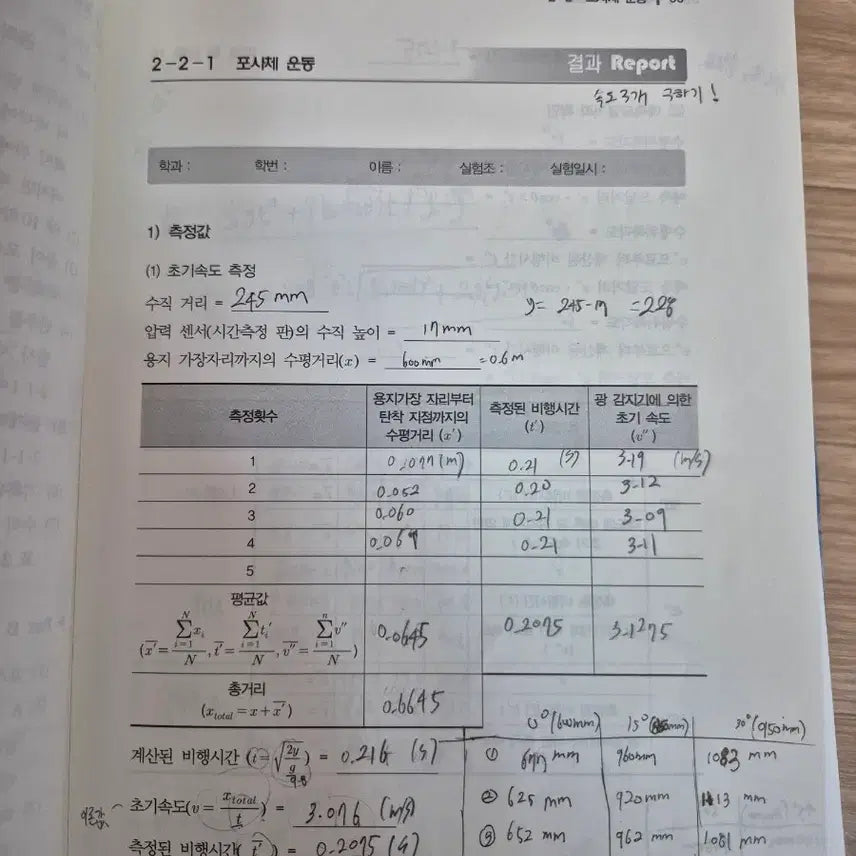 2-2-1 포사체 운동
결과 Report
속도 3개 구하기!
학과 : 학번 : 이름 : 실험조 : 실험일시 :
1) 측정값
(1) 초기속도 측정
수직 거리 = 245 mm y = 245-17 = 228
압력 센서(시간측정 판)의 수직 높이 = 17mm
용지 가장자리까지의 수평거리(x) = 600mm =0.6m
측정횟수 용지가장 자리부터 탄착 지점까지의 수평거리 (x′) 측정된 비행시간 (t′) 광 감지기에 의한 초기 속도 (v″)
1 (m) 0.21 (s) 3.19 (m/s)
2 0.052 0.20 3.12
3 0.060 0.21 3.09
4 0.21 3.11
5
평균값 (x̄′ = ΣN i=1 xi / N, t̄′ = ΣN i=1 ti′ / N, v̄″ = Σn i=1 v″ / N) 0.0645 0.2075 3.1275
총거리 (xtotal = x + x̄′) 0.6645
0°(600mm) 15° 30°(950mm)
계산된 비행시간 (t = √(2y/g)) = 0.216 (s)
9.8
① 677 mm 960mm 1083 mm
이론값
초기속도(v = xtotal/t) = 3.076 (m/s)
② 625 mm 920mm 1113 mm
측정된 비행시간( t̄′ ) = 0.2075 (s)
③ 652 mm 962 mm 1081 mm